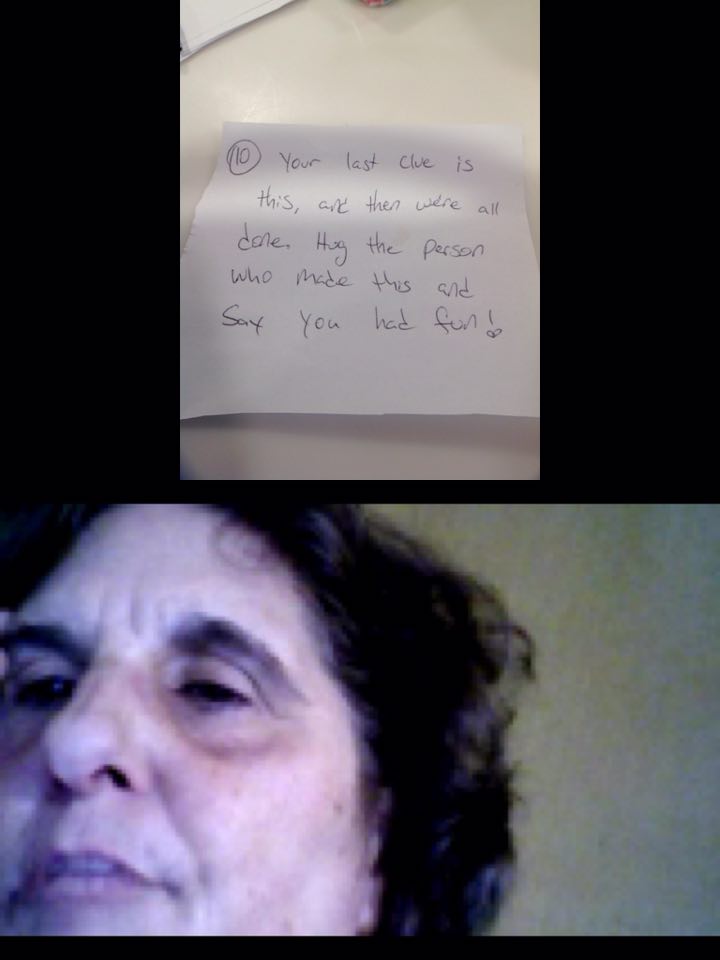 10 Your last clue is
this, and then we're all
done. Hug the person
who made this and
Say you had fun!